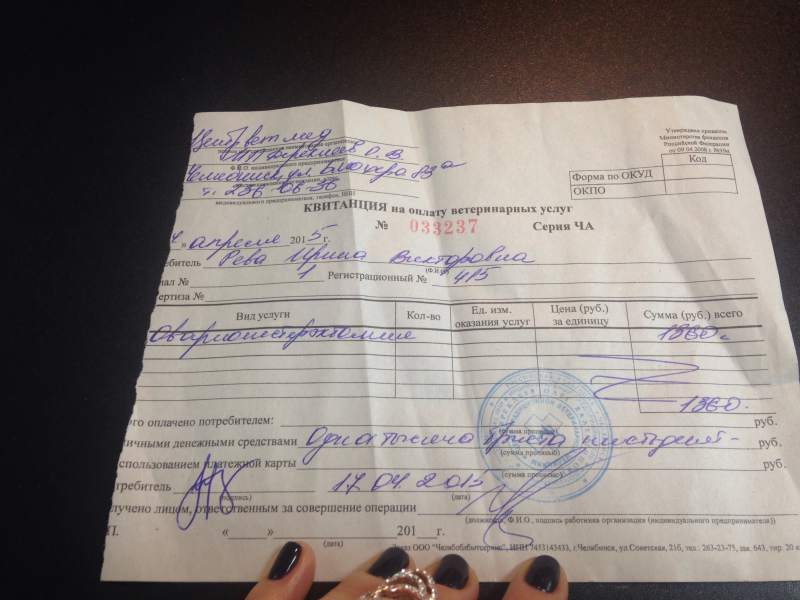 Центр ветмед
Утверждена приказом
Министерства финансов
Российской Федерации
от 09.04.2008 г. №39н
Ф.И.О. индивидуального предпринимателя
ул. 83а
т. 236-06-36
индивидуального предпринимателя, телефон, ИНН
Код
Форма по ОКУД
ОКПО
КВИТАНЦИЯ на оплату ветеринарных услуг
№ 033237 Серия ЧА
апреля 2015 г.
ребитель Рева Ирина Викторовна
(Ф.И.О.)
нал № 1 Регистрационный № 415
ертиза №
Вид услуги Кол-во Ед. изм. оказания услуг Цена (руб.) за единицу Сумма (руб.) всего
Овариогистерэктомия 1360
1360.
го оплачено потребителем: руб.
(сумма прописью)
личными денежными средствами Одна тысяча триста шестьдесят - руб.
(сумма прописью)
использованием платежной карты руб.
(сумма прописью)
требитель 17.04.2015
(подпись) (дата)
лучено лицом, ответственным за совершение операции
(должность, Ф.И.О., подпись работника организации (индивидуального предпринимателя))
П. « » 201 г.
(дата)
Заказ ООО "Челябобябытсервис", ИНН 7453143433, г.Челябинск, ул.Советская, 21б, тел.: 263-23-75, зак. 643, тир. 20